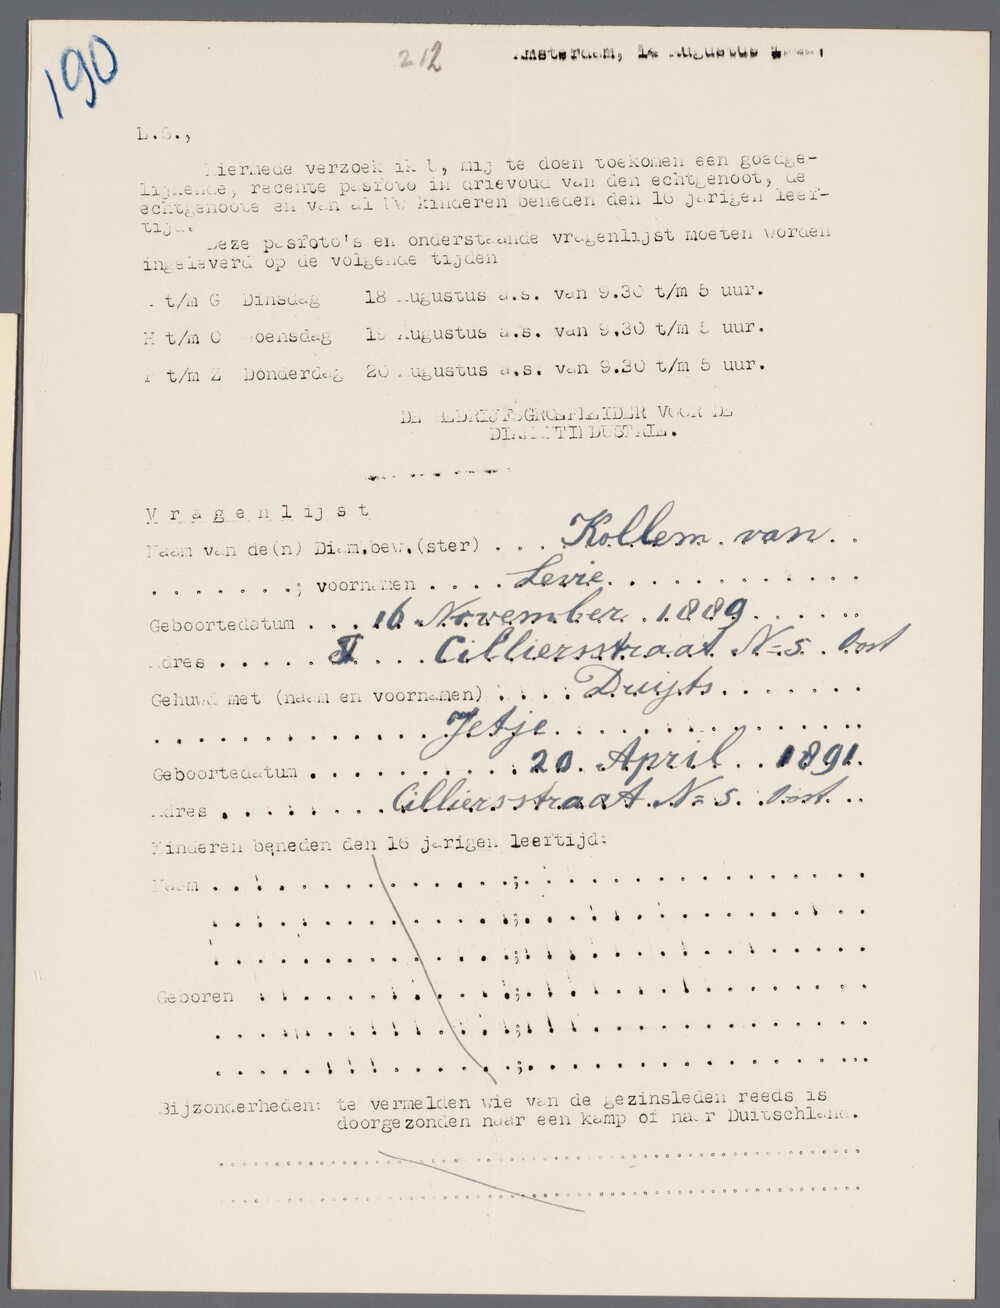 190
212
Amsterdam, 14 Augustus
L.S.,
Hiermede verzoek ik U, mij te doen toekomen een goedge-
lijkende, recente pasfoto in drievoud van den echtgenoot, de
echtgenoote en van al Uw kinderen beneden den 16 jarigen leef-
tijd.
Deze pasfoto's en onderstaande vragenlijst moeten worden
ingeleverd op de volgende tijden
t/m G Dinsdag 18 Augustus a.s. van 9.30 t/m 5 uur.
H t/m O Woensdag 19 Augustus a.s. van 9.30 t/m 5 uur.
P t/m Z Donderdag 20 Augustus a.s. van 9.30 t/m 5 uur.
DE BEDRIJFSGROEPLEIDER VOOR DE
DIAMANTINDUSTRIE.
Vragenlijst
Naam van de(n) Diam.bew.(ster) . . . Kollem. van. .
. . . . . . .; voornamen . . . . Levie. . . . . . . . . . . .
Geboortedatum . . . 16 November. 1889. . . . . .
Adres . . . . . I . . . Cilliersstraat N=5. Oost
Gehuwd met (naam en voornamen) . . . . Druijts. . . . . . .
. . . . . . . . . . . . . Jetje. . . . . . . . . . . . . .
Geboortedatum . . . . . . . . . 20. April. . 1891.
Adres . . . . . . . Cilliersstraat. N=5. Oost. . .
Kinderen beneden den 16 jarigen leeftijd:
Naam . . . . . . . . . . . . . . ; . . . . . . . . . . . . . . .
. . . . . . . . . . . . . . ; . . . . . . . . . . . . . . .
. . . . . . . . . . . . . . ; . . . . . . . . . . . . . . .
Geboren . . . . . . . . . . . . ; . . . . . . . . . . . . . . .
. . . . . . . . . . . . . . ; . . . . . . . . . . . . . . .
. . . . . . . . . . . . . . ; . . . . . . . . . . . . . . .
Bijzonderheden: te vermelden wie van de gezinsleden reeds is
doorgezonden naar een kamp of naar Duitschland.